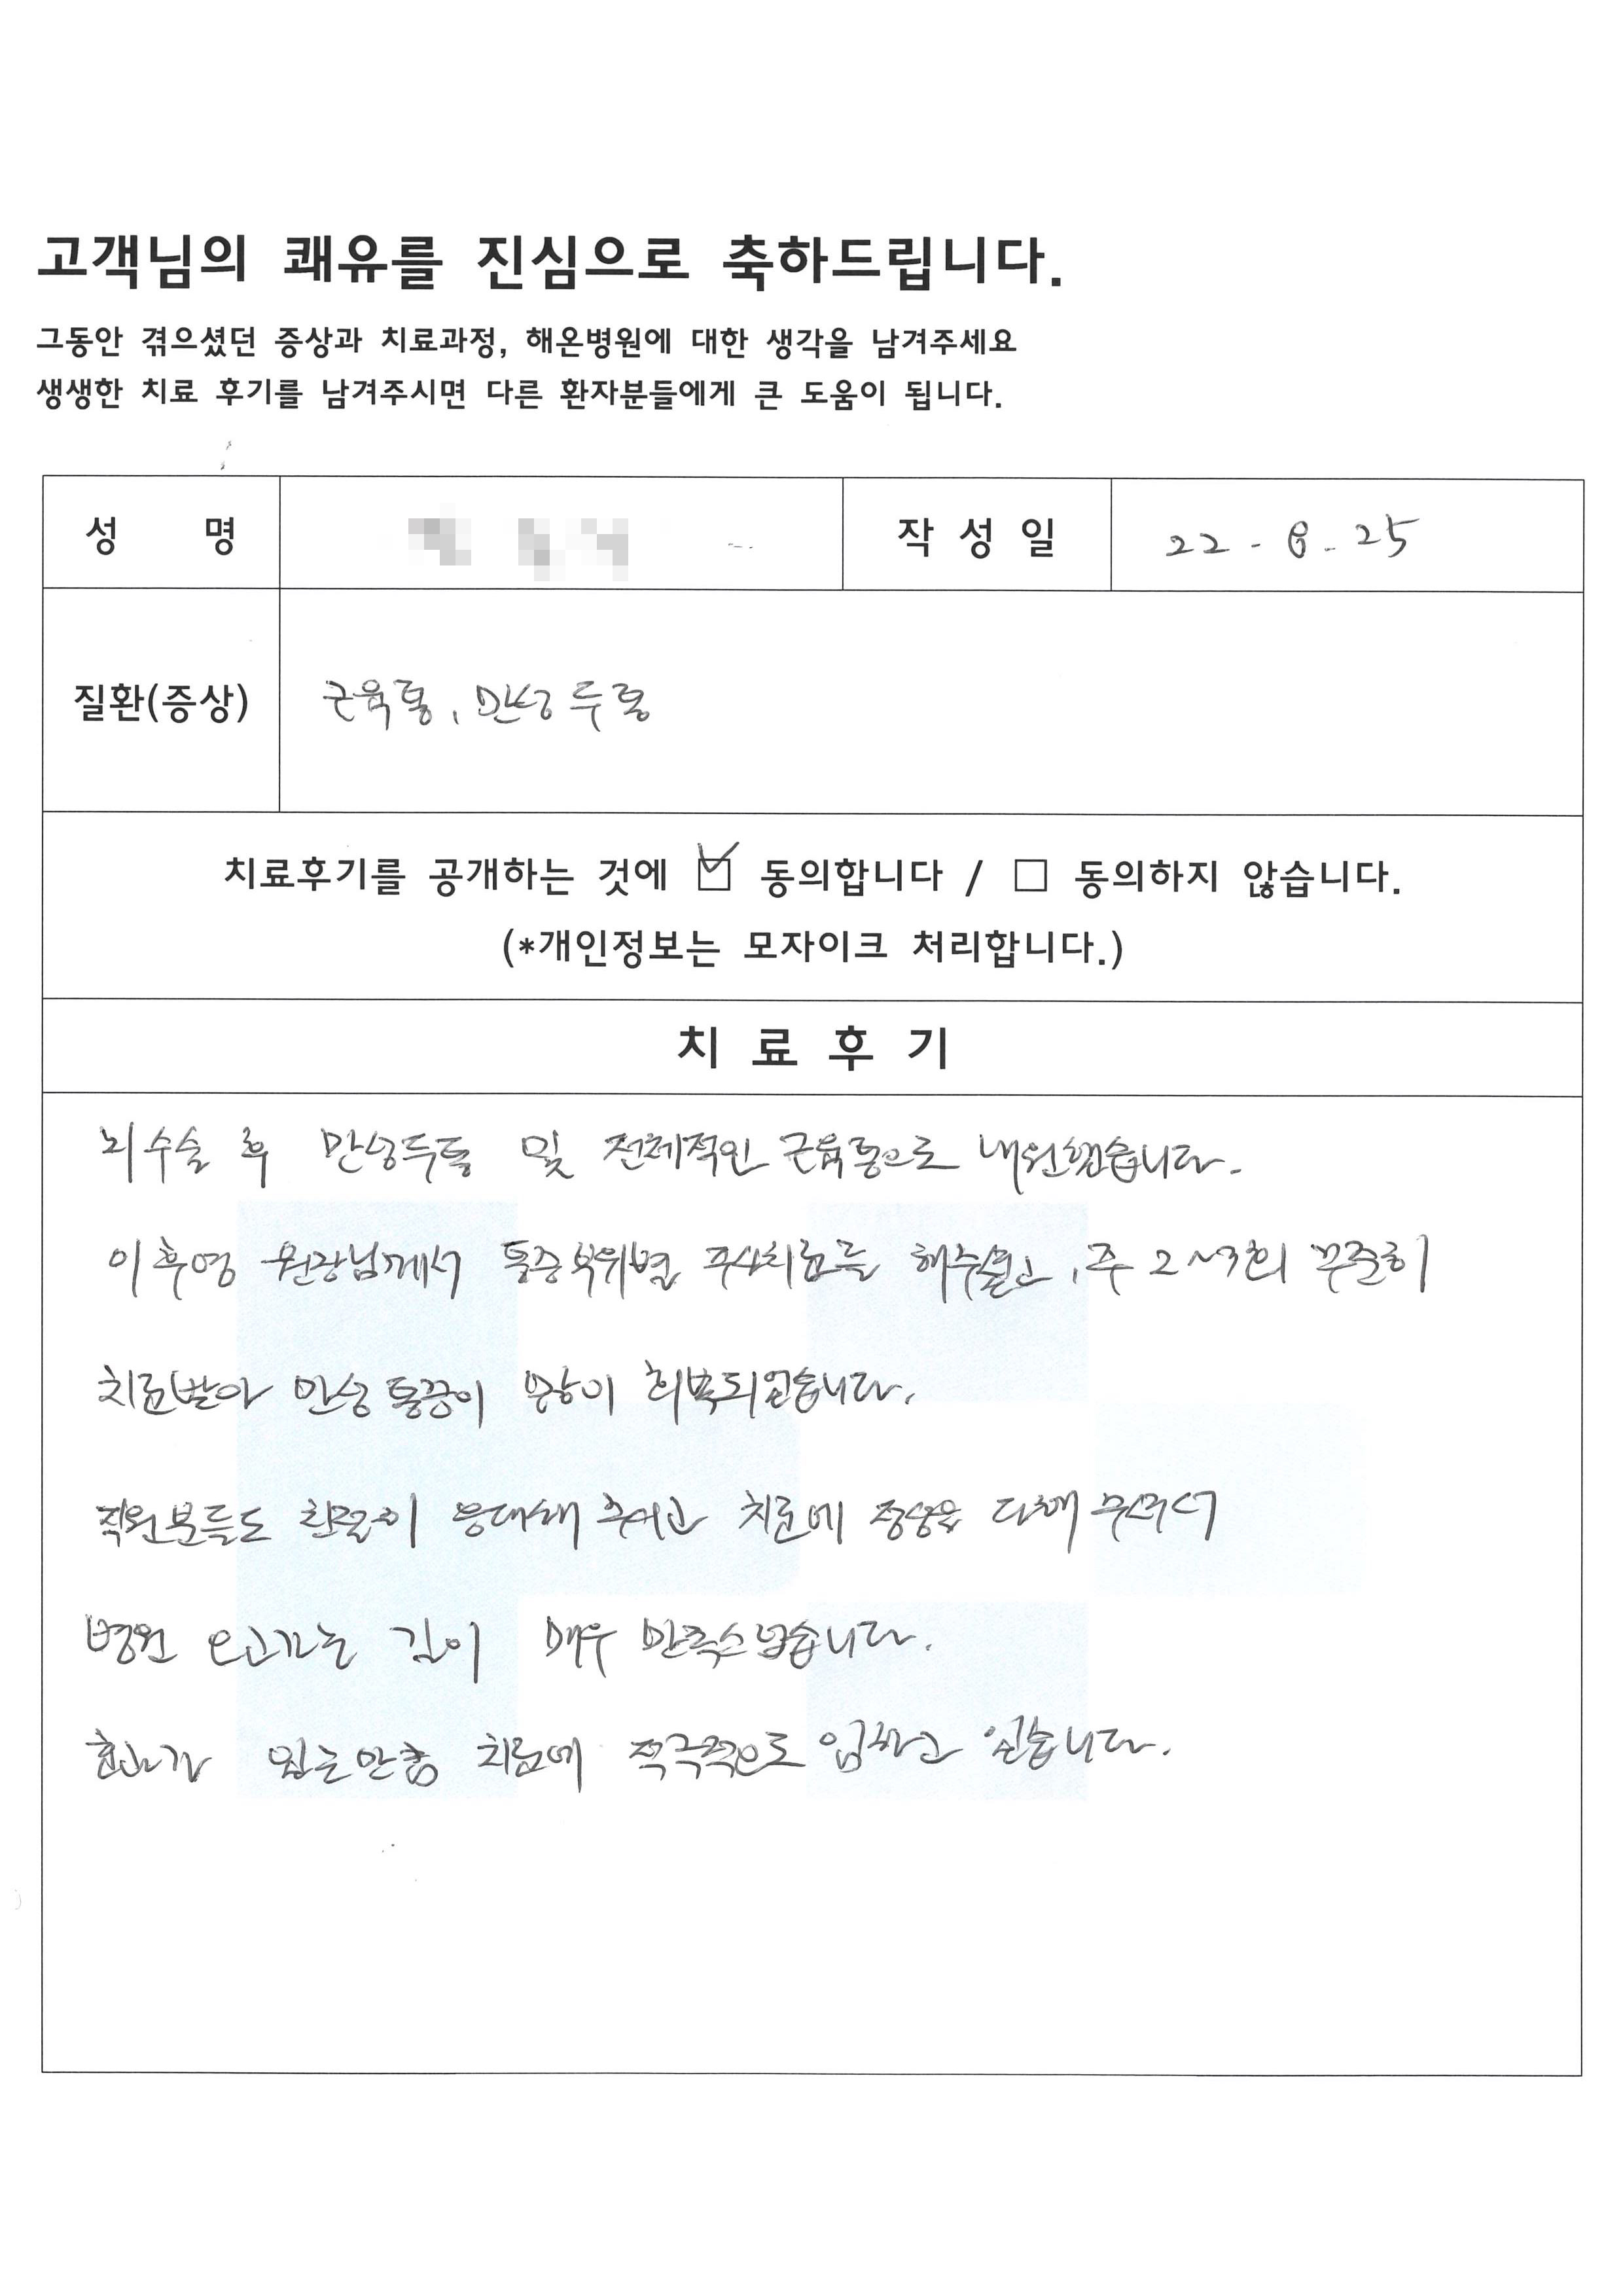 고객님의 쾌유를 진심으로 축하드립니다.
그동안 겪으셨던 증상과 치료과정, 해온병원에 대한 생각을 남겨주세요
생생한 치료 후기를 남겨주시면 다른 환자분들에게 큰 도움이 됩니다.
성 명
작 성 일 22 - 8 - 25
질환(증상) 근육통, 만성 두통
치료후기를 공개하는 것에 ☑ 동의합니다 / □ 동의하지 않습니다.
(*개인정보는 모자이크 처리합니다.)
치 료 후 기
뇌수술 후 만성두통 및 전체적인 근육통으로 내원했습니다.
이후영 원장님께서 통증부위별 주사치료를 해주셨고, 주 2~3회 꾸준히
치료받아 만성 통증이 많이 회복되었습니다.
직원분들도 친절히 응대해 주시고 치료에 정성을 다해 주셔서
병원 오고가는 길이 매우 만족스럽습니다.
효과가 있는만큼 치료에 적극적으로 임하고 있습니다.